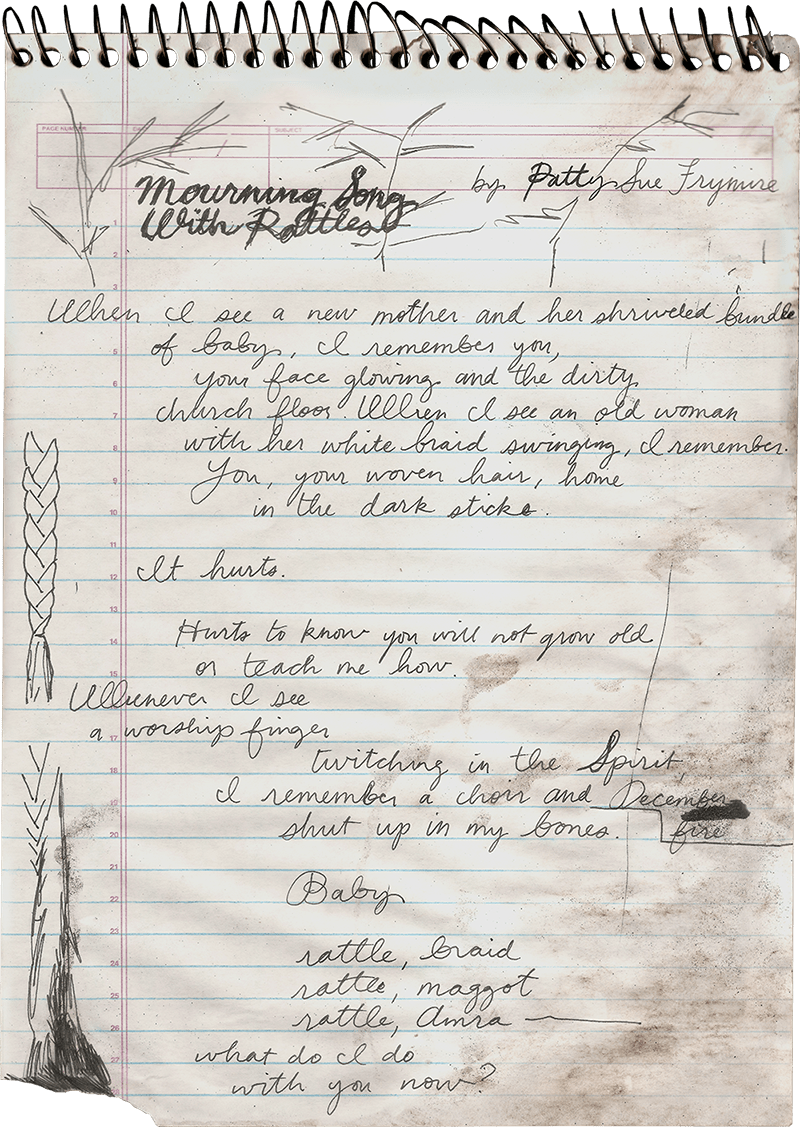 PAGE NUMBER DATE SUBJECT
Mourning Song
With Rattles
by Patty Sue Frymire
1
2
3
When I see a new mother and her shriveled bundle
of baby, I remember you,
5
your face glowing and the dirty
6
church floor. When I see an old woman
7
with her white braid swinging, I remember.
8
You, your woven hair, home
9
in the dark sticks.
10
11
It hurts.
12
13
Hurts to know you will not grow old
14
or teach me how.
15
Whenever I see
a worship finger
17
twitching in the Spirit,
18
I remember a choir and December
19
shut up in my bones. fire
20
21
Baby
22
23
rattle, braid
24
rattle, maggot
25
rattle, Amra —
26
what do I do
27
with you now?